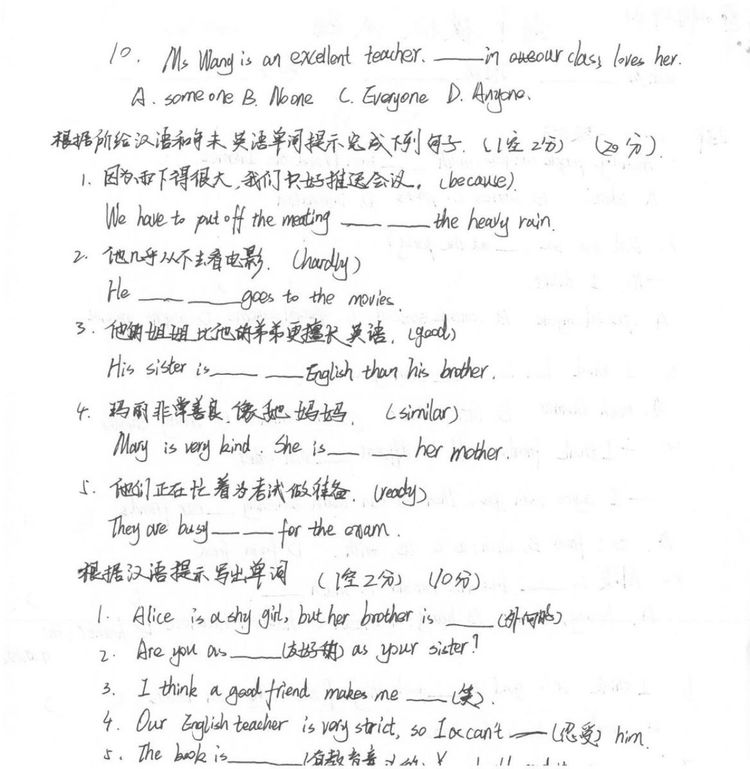 10. Ms Wang is an excellent teacher. ____ in our class loves her.
A. someone B. No one C. Everyone D. Anyone.
根据所给汉语和句末英语单词提示完成下列句子. (1空2分) (20分)
1. 因为雨下得很大,我们只好推迟会议. (because)
We have to put off the meating ____ ____ the heavy rain.
2. 他几乎从不去看电影. (hardly)
He ____ ____ goes to the movies
3. 他的姐姐比他的弟弟更擅长英语. (good)
His sister is ____ ____ English than his brother.
4. 玛丽非常善良.像她妈妈. (similar)
Mary is very kind. She is ____ ____ her mother.
5. 他们正在忙着为考试做准备. (ready)
They are busy ____ ____ for the exam.
根据汉语提示写出单词 (1空2分) (10分)
1. Alice is a shy girl, but her brother is ____ (外向的)
2. Are you as ____ (友好的) as your sister?
3. I think a good friend makes me ____ (笑).
4. Our English teacher is very strict, so I can't ____ (忍受) him.
5. The book is ____ (有教育意义的).